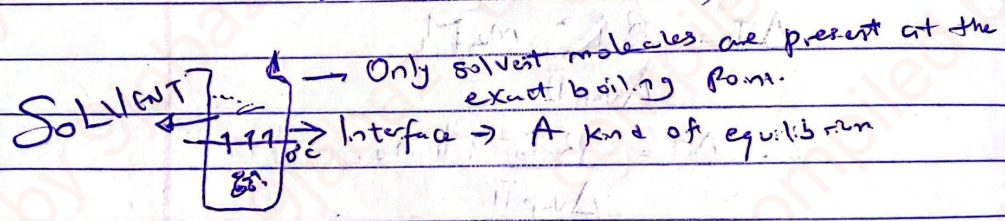 → Only solvent molecules are present at the
exact boiling Point.
SOLVENT
→ Interface → A kind of equilibrium